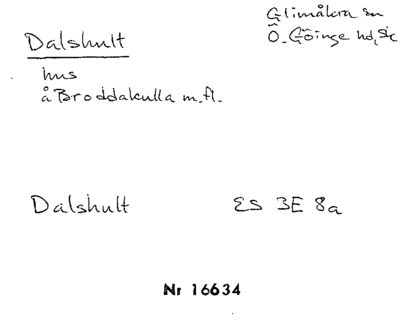 Glimåkra sn
Dalshult
Ö. Göinge hd, Sk
hus
å Broddakulla m.fl.
Dalshult ES 3E 8a
Nr 16634